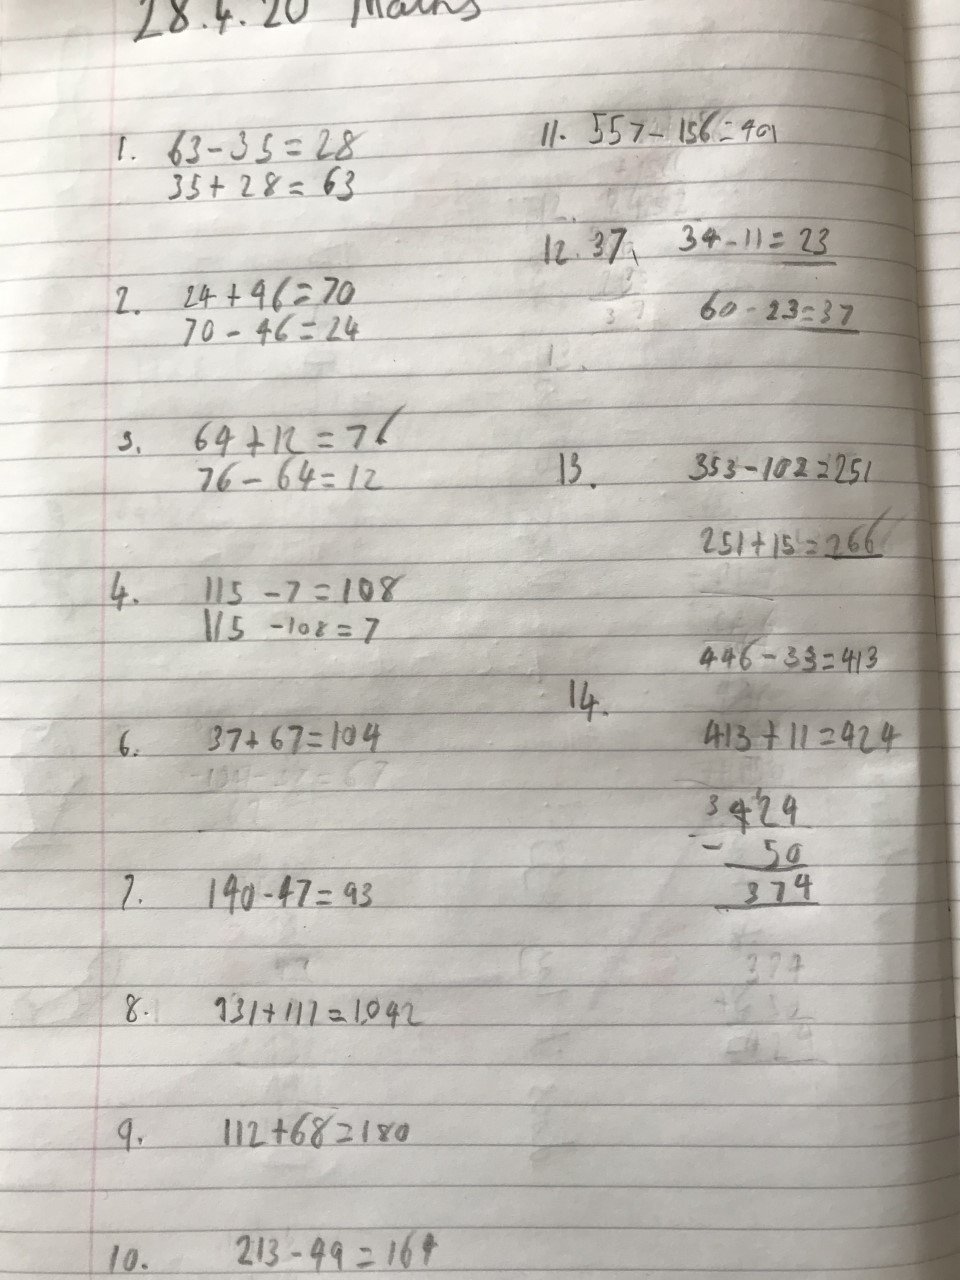 28.4.20 Maths
1. 63-35=28
35+28=63
2. 24+46=70
70-46=24
3. 64+12=76
76-64=12
4. 115-7=108
115-108=7
6. 37+67=104
104-37=67
7. 140-47=93
8. 931+111=1042
9. 112+68=180
10. 213-49=164
11. 557-156=401
12. 37 34-11=23
60-23=37
13. 353-102=251
251+15=266
446-33=413
14.
413+11=424
3 4124
- 50
374